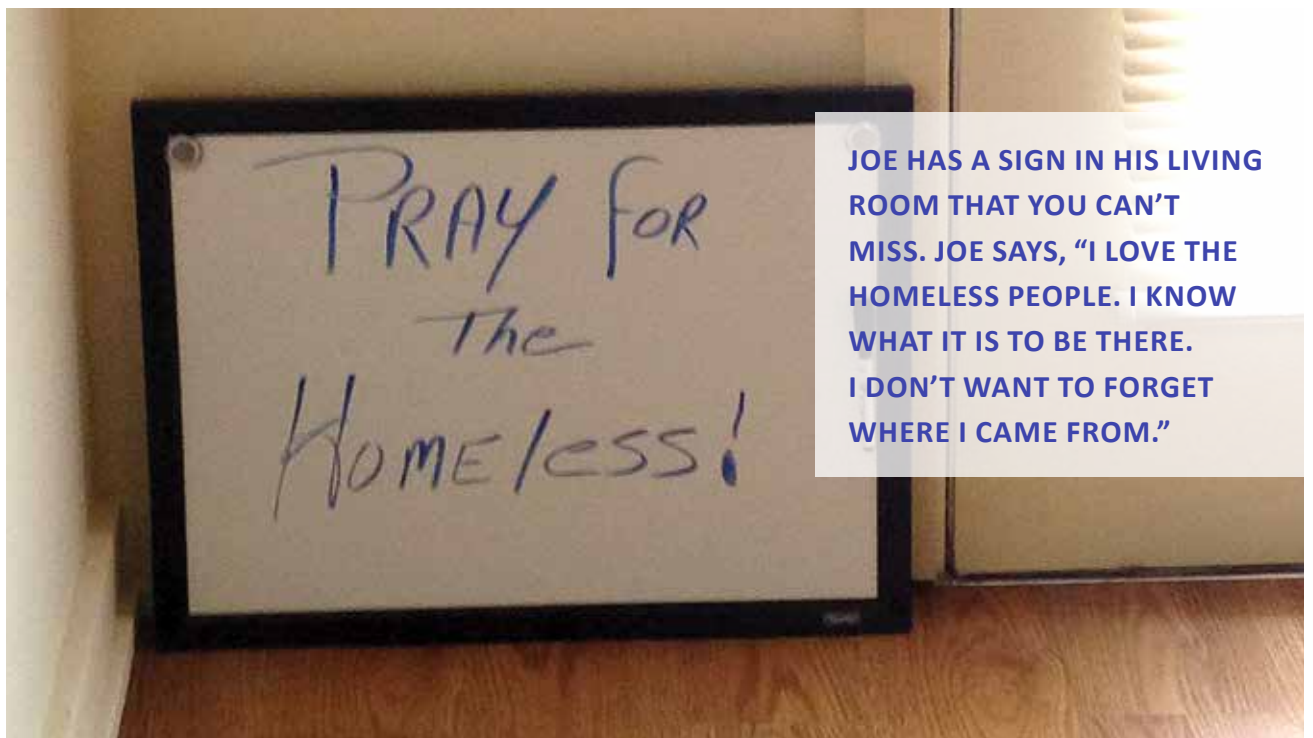 PRAY FOR
The
HOMEless!
JOE HAS A SIGN IN HIS LIVING
ROOM THAT YOU CAN’T
MISS. JOE SAYS, “I LOVE THE
HOMELESS PEOPLE. I KNOW
WHAT IT IS TO BE THERE.
I DON’T WANT TO FORGET
WHERE I CAME FROM.”